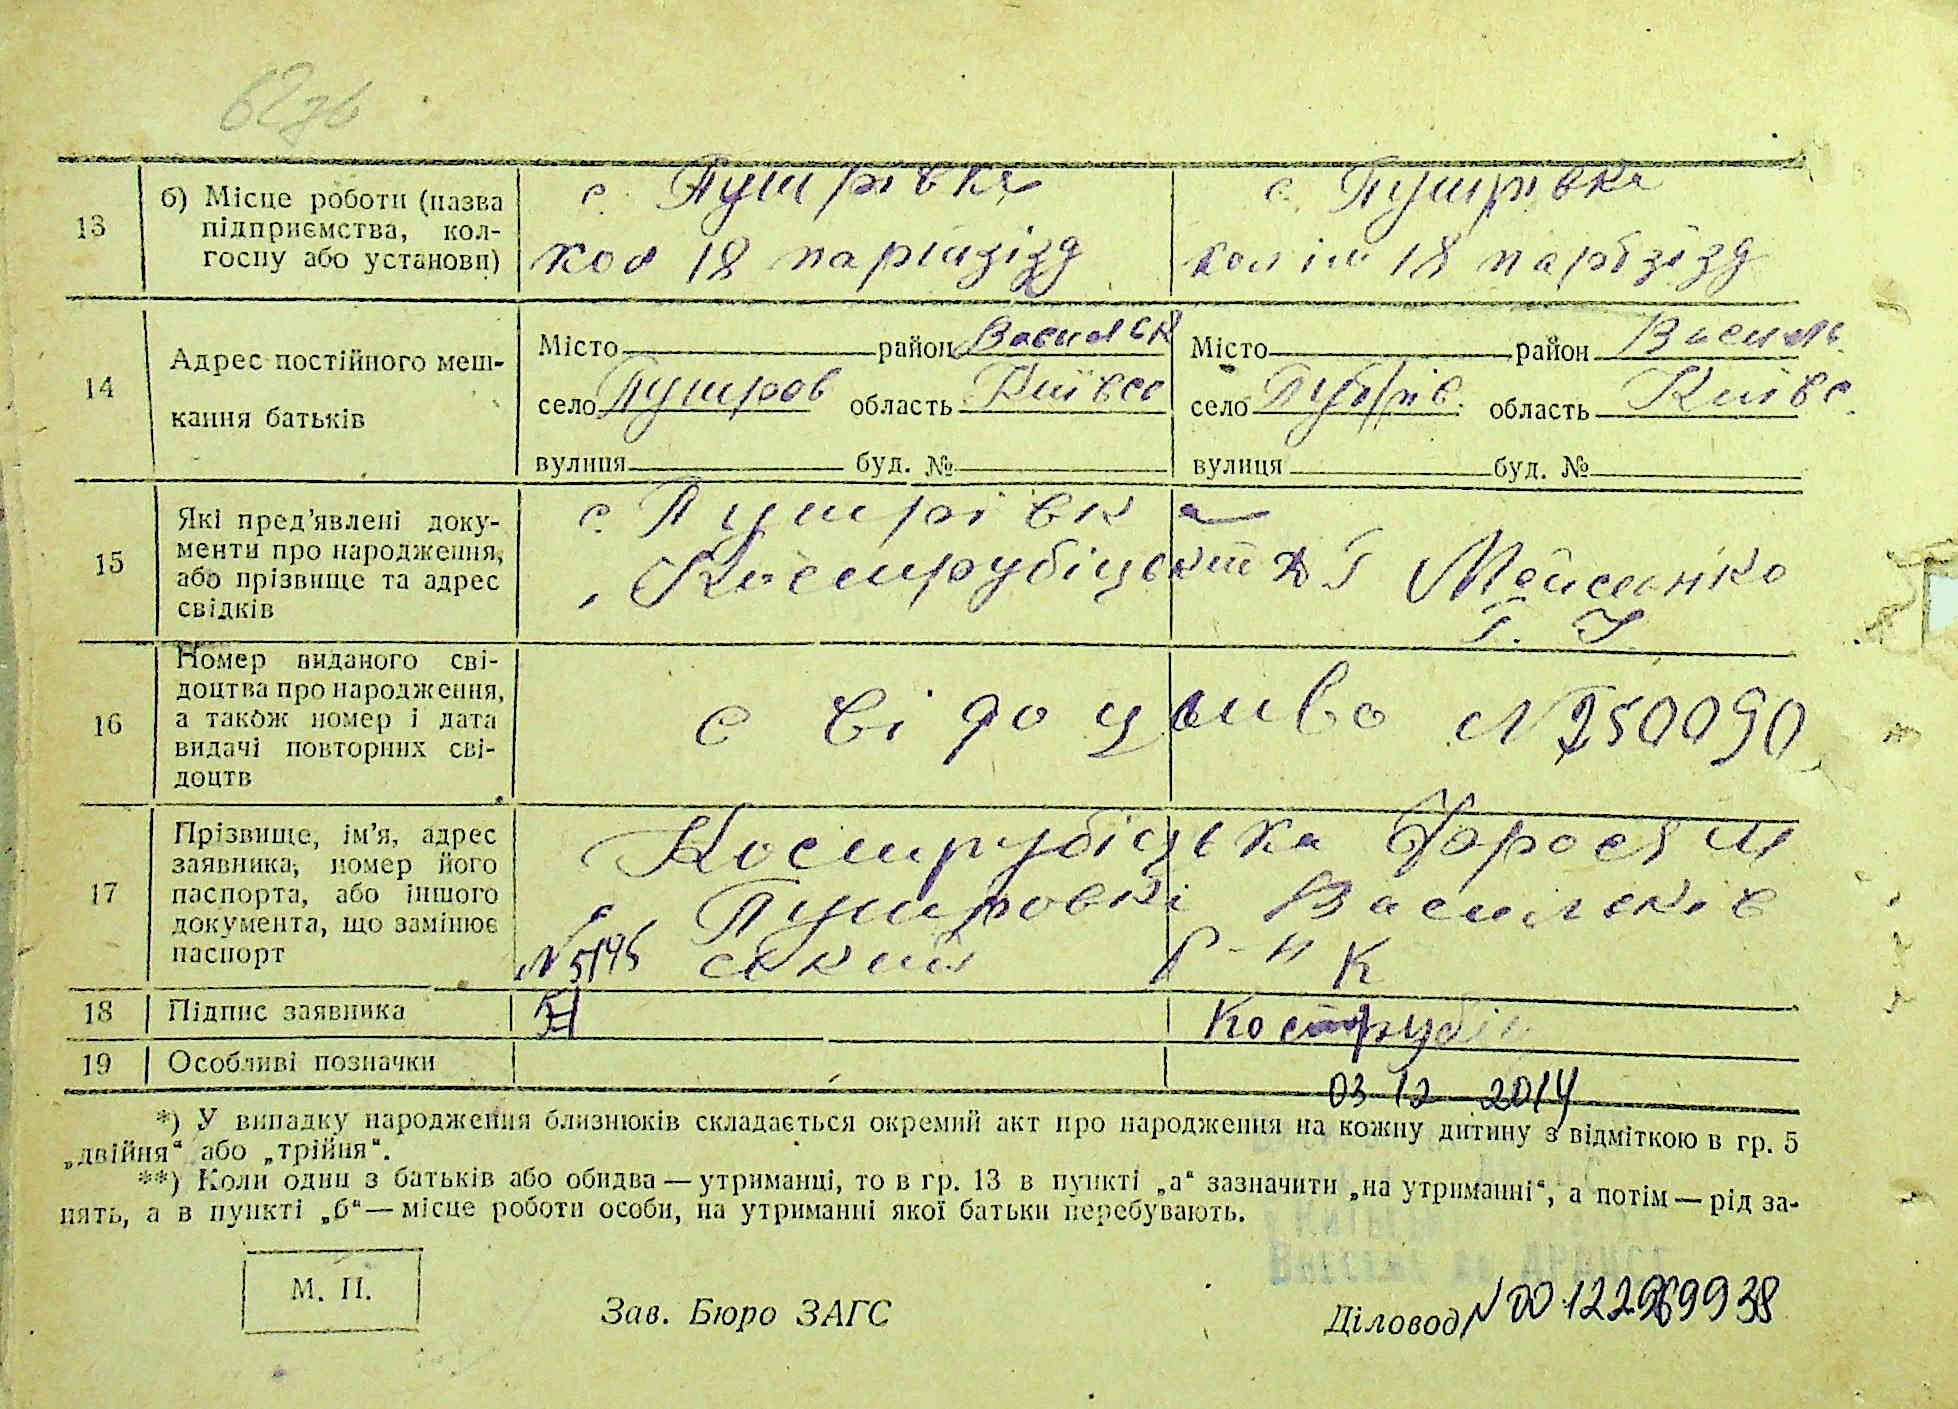 13 б) Місце роботи (назва підприємства, кол-
госпу або установи)
с. Пушрівка
кол 18 партзізд
с. Пушрівка
18 партзізд
14 Адрес постійного меш-
кання батьків
Місто район Васильк
село область Київсо
вулиця буд. №
Місто район Василь
село область Київс.
вулиця буд. №
15 Які пред'явлені доку-
менти про народження,
або прізвище та адрес
свідків
с. Пушрівка
Кострубіцький Г Мойсенко
Г. І.
16 Номер виданого сві-
доцтва про народження,
а також номер і дата
видачі повторних сві-
доцтв
свідоцтво № 250090
17 Прізвище, ім'я, адрес
заявника, номер його
паспорта, або іншого
документа, що замінює
паспорт
Кострубіцька
с. Пушровкі Васильків
ский р-н К
18 Підпис заявника
Кострубіц
19 Особливі позначки
03 12 2014
*) У випадку народження близнюків складається окремий акт про народження на кожну дитину з відміткою в гр. 5
„двійня“ або „трійня“.
**) Коли один з батьків або обидва — утриманці, то в гр. 13 в пункті „а“ зазначити „на утриманні“, а потім — рід за-
нять, а в пункті „б“ — місце роботи особи, на утриманні якої батьки перебувають.
М. П.
Зав. Бюро ЗАГС
Діловод № 00122969938